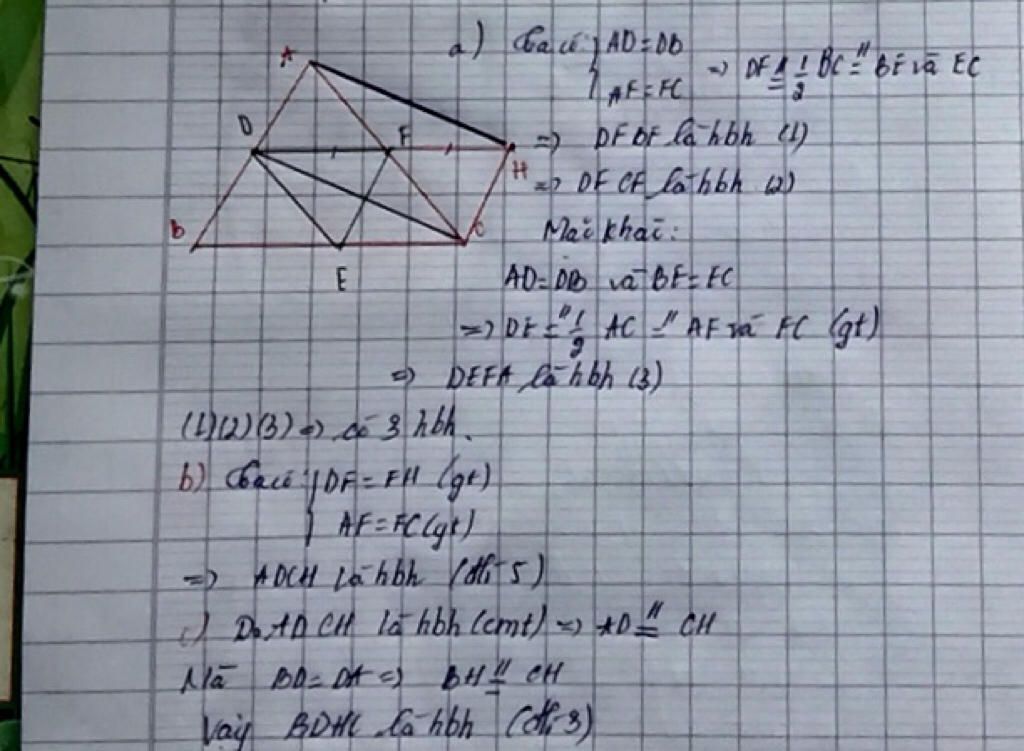 A
D
F
H
B
C
E
a) Ta có { AD = DB
AF = FC
=> DF // = 1/2 BC = // BE và EC
=> DFBE là hbh (1)
=> DFCE là hbh (2)
Mặt khác:
AD = DB và BE = EC
=> DE // = 1/2 AC // = AF và FC (gt)
=> DEFA là hbh (3)
(1)(2)(3) => có 3 hbh.
b) Ta có { DF = FH (gt)
AF = FC (gt)
=> ADCH là hbh (dh-5)
c) Do ADCH là hbh (cmt) => AD // = CH
Mà BD = DA => BH // = CH
Vậy BDHC là hbh (dh-3)